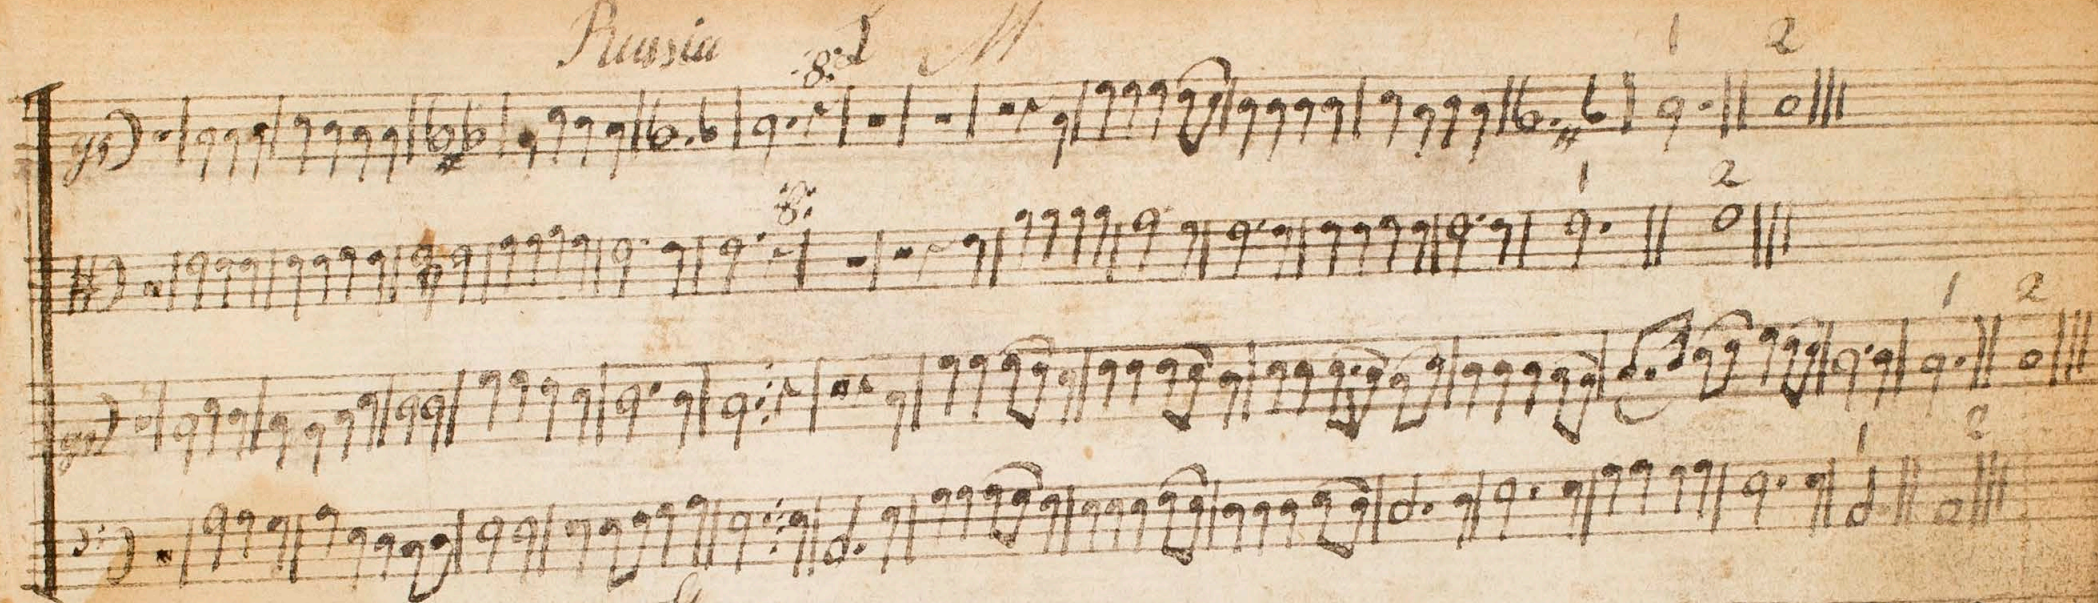 Russia L M
1 2
1 2
1 2
1 2